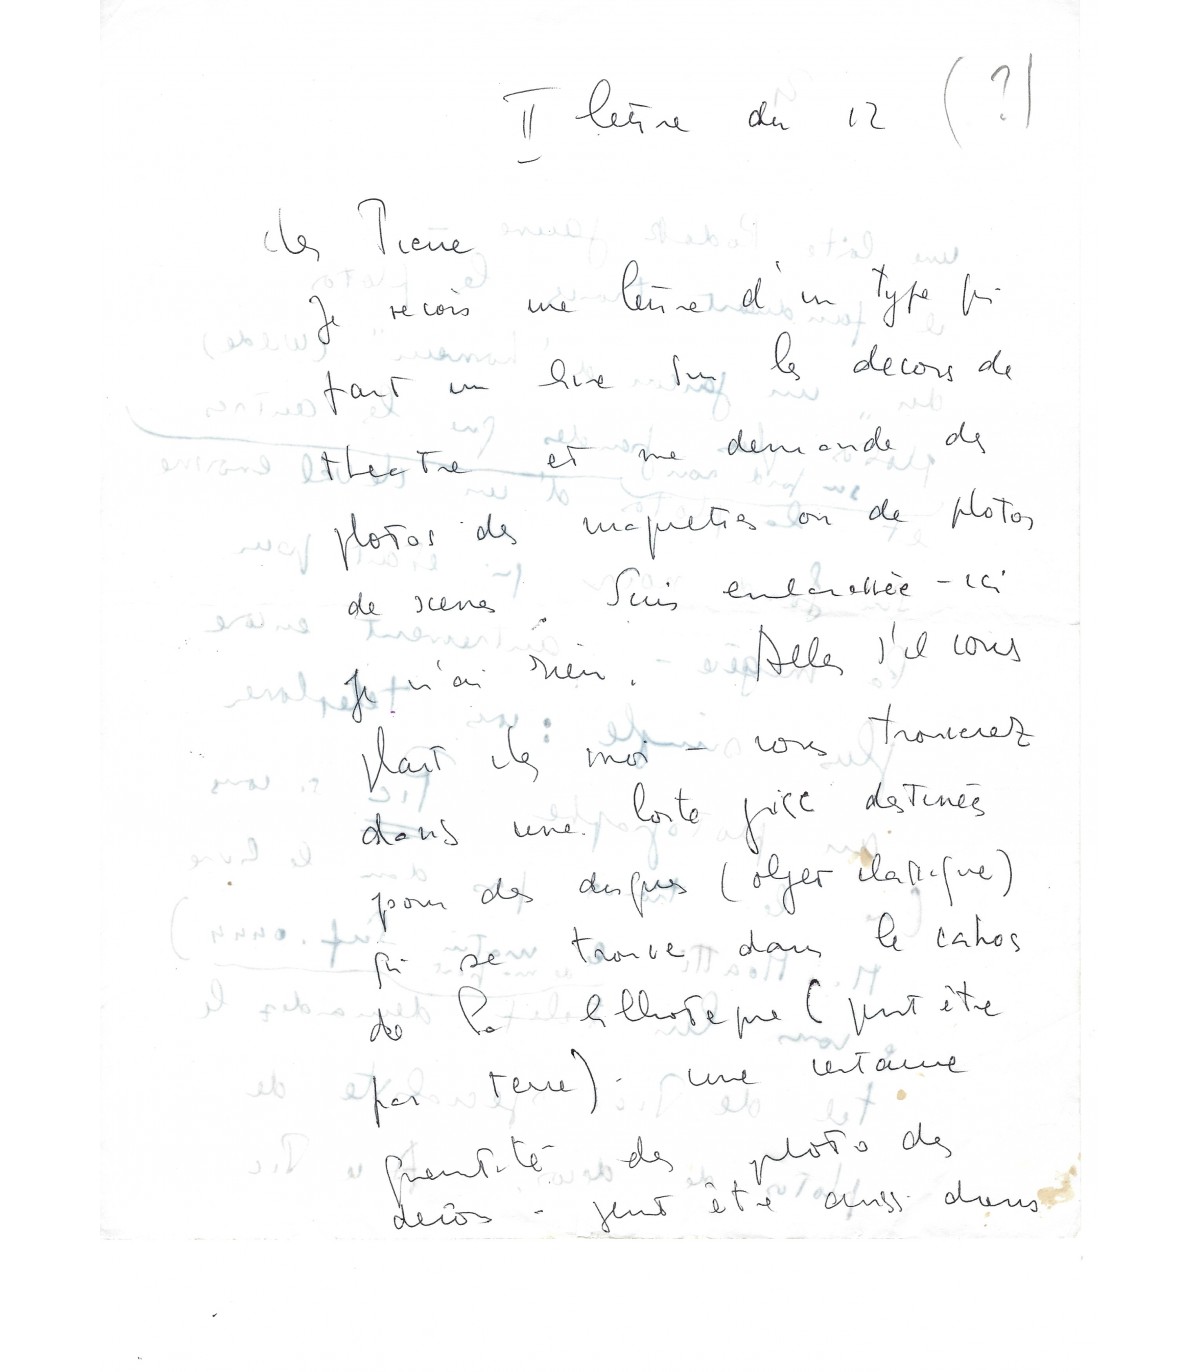 II lettre du 12 (?)
cher Pierre
Je recois une lettre d'un type qui
fait un livre sur les decors de
theatre et me demande des
photos des maquettes ou de photos
de scenes. Suis embarassée - ici
je n'ai rien. Allez s'il vous
plait chez moi - vous trouverez
dans une boite grise destinée
pour des disques (objet classique)
qui se trouve dans le cahos
de la biblioteque (peut être
par terre) - une certaine
quantité des photos des
decors - peut être aussi dans